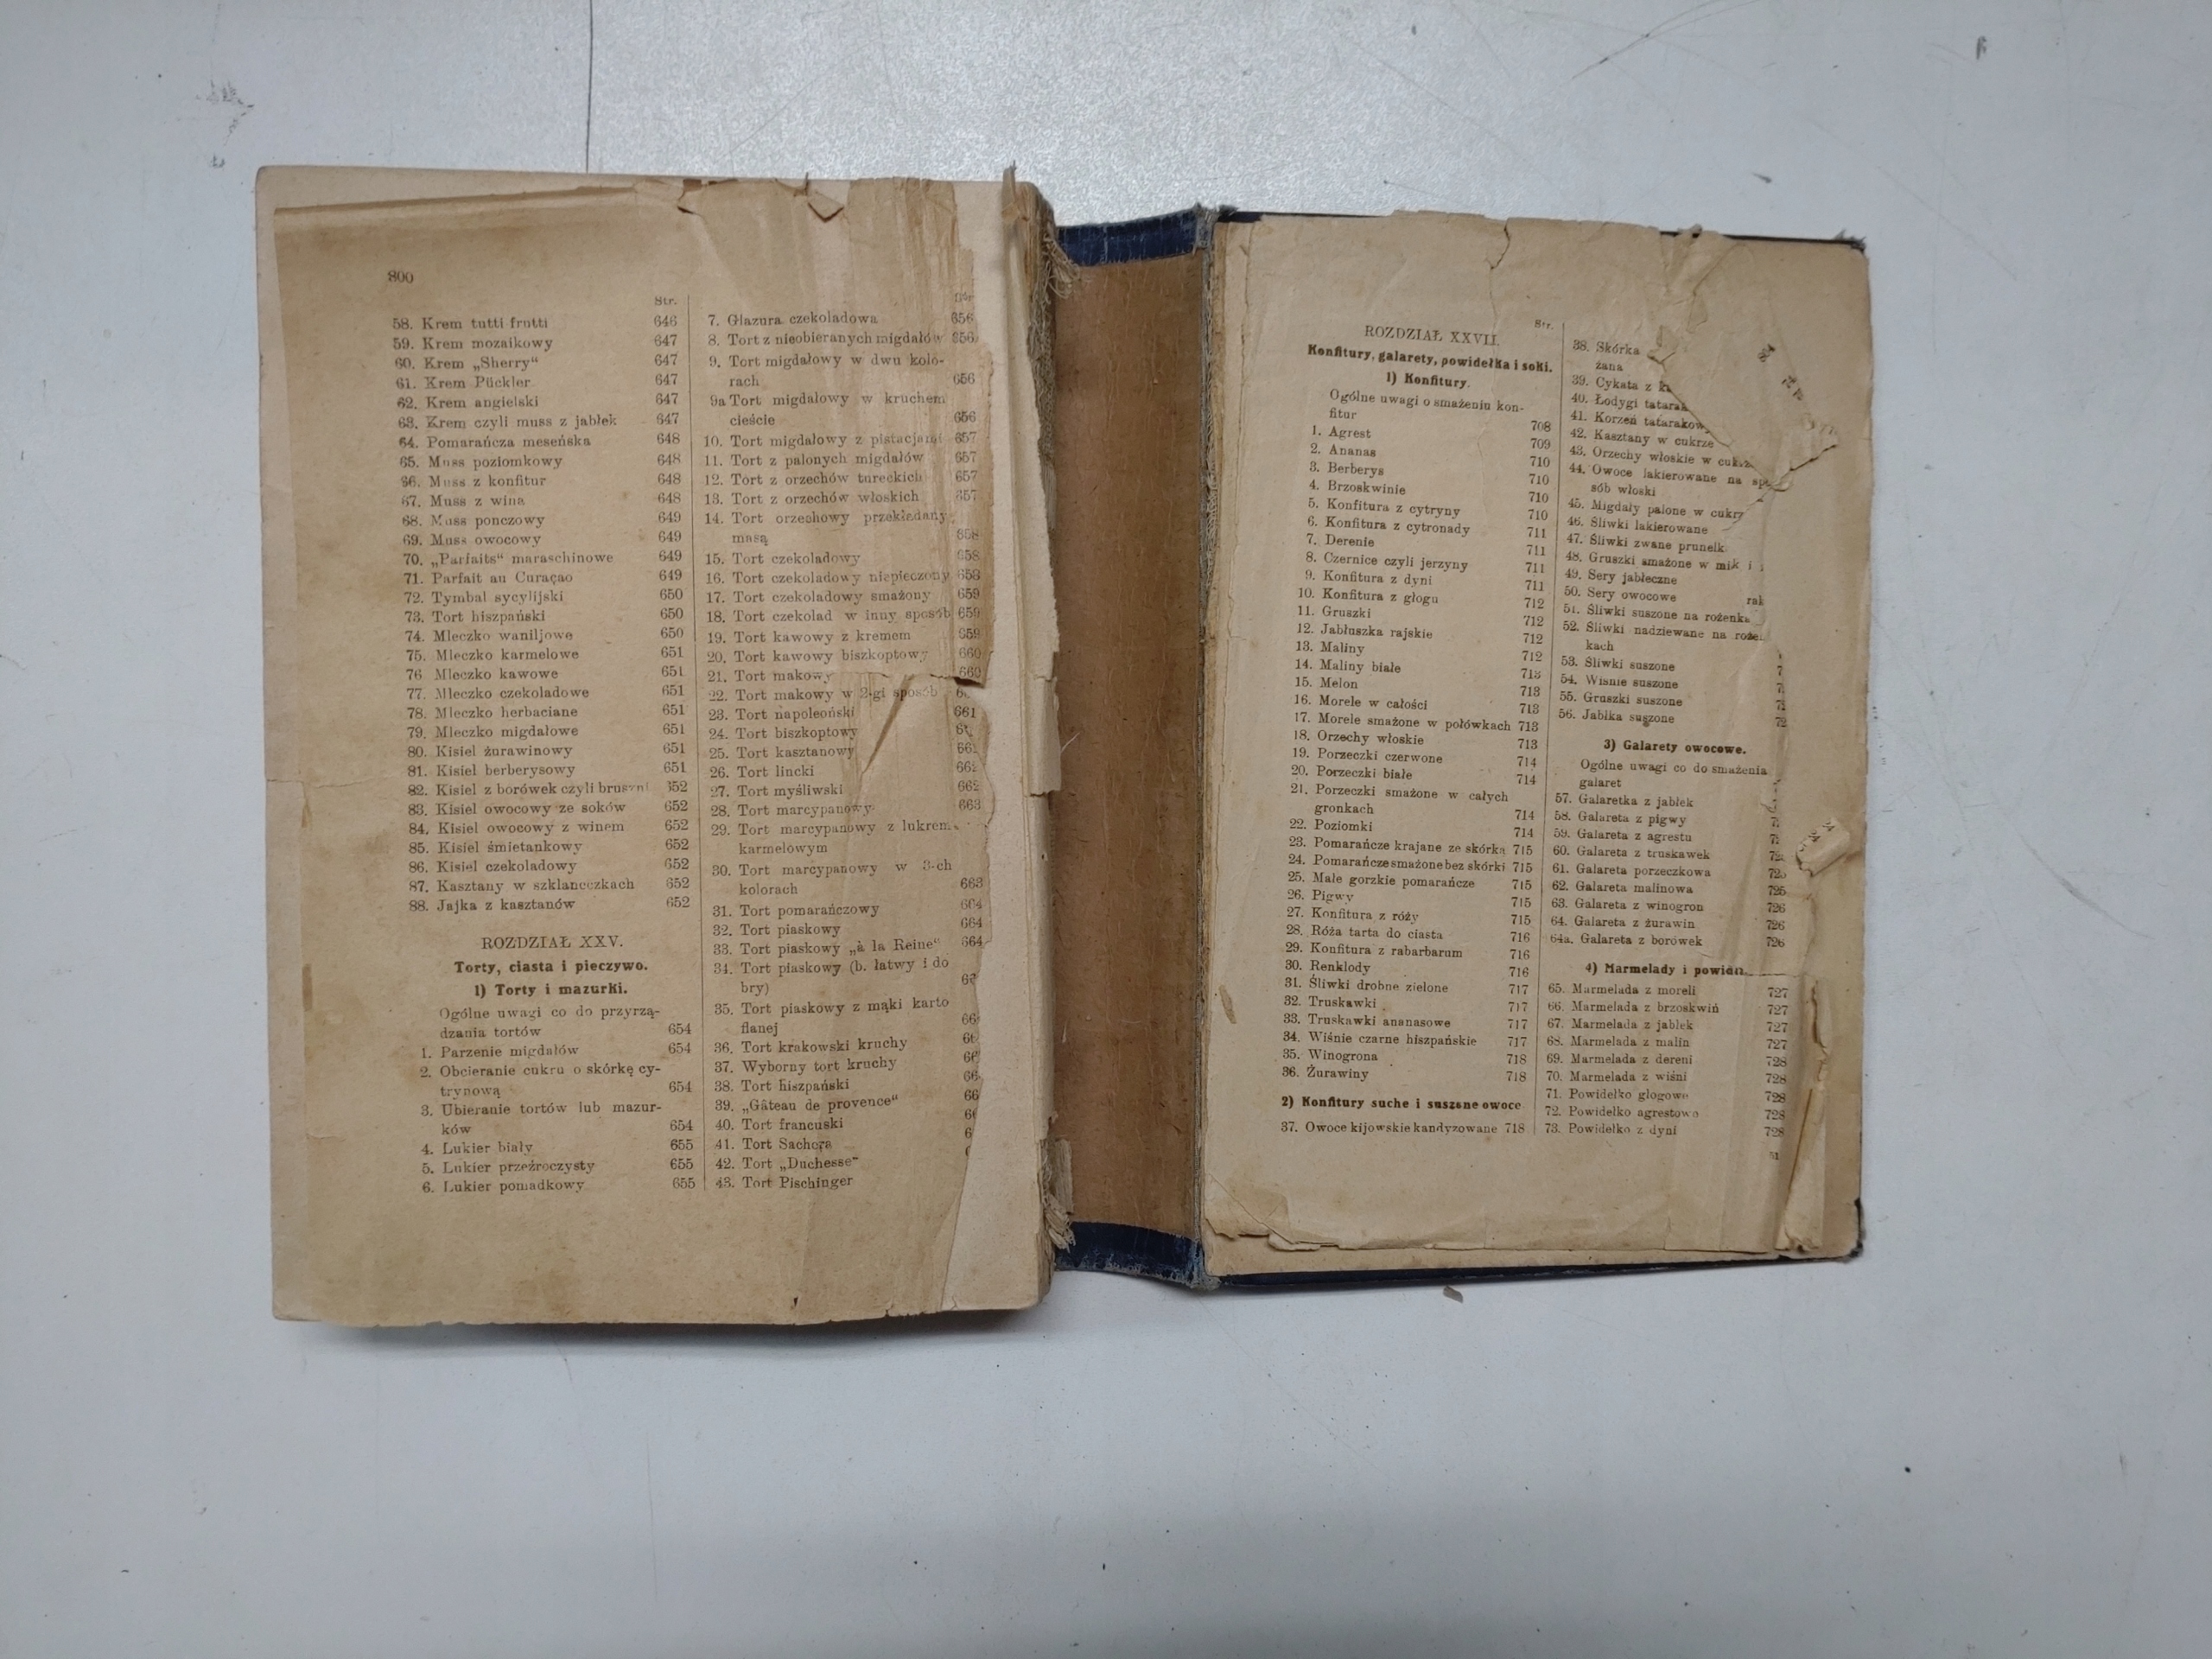 800
Str.
58. Krem tutti frutti 646
59. Krem mozaikowy 647
60. Krem „Sherry“ 647
61. Krem Pückler 647
62. Krem angielski 647
63. Krem czyli muss z jabłek 647
64. Pomarańcza meseńska 648
65. Muss poziomkowy 648
66. Muss z konfitur 648
67. Muss z wina 648
68. Muss ponczowy 649
69. Muss owocowy 649
70. „Parfaits“ maraschinowe 649
71. Parfait au Curaçao 649
72. Tymbal sycylijski 650
73. Tort hiszpański 650
74. Mleczko waniljowe 650
75. Mleczko karmelowe 651
76 Mleczko kawowe 651
77. Mleczko czekoladowe 651
78. Mleczko herbaciane 651
79. Mleczko migdałowe 651
80. Kisiel żurawinowy 651
81. Kisiel berberysowy 651
82. Kisiel z borówek czyli 652
83. Kisiel owocowy ze soków 652
84. Kisiel owocowy z winem 652
85. Kisiel śmietankowy 652
86. Kisiel czekoladowy 652
87. Kasztany w szklaneczkach 652
88. Jajka z kasztanów 652
ROZDZIAŁ XXV.
Torty, ciasta i pieczywo.
1) Torty i mazurki.
Ogólne uwagi co do przyrzą-
dzania tortów 654
1. Parzenie migdałów 654
2. Obcieranie cukru o skórkę cy-
trynową 654
3. Ubieranie tortów lub mazur-
ków 654
4. Lukier biały 655
5. Lukier przeźroczysty 655
6. Lukier pomadkowy 655
7. Glazura czekoladowa 656
8. Tort z nieobieranych migdałów 656
9. Tort migdałowy w dwu kolo-
rach 656
9a Tort migdałowy w kruchem
cieście 656
10. Tort migdałowy z pistacjami 657
11. Tort z palonych migdałów 657
12. Tort z orzechów tureckich 657
13. Tort z orzechów włoskich 657
14. Tort orzechowy przekładany
masą 658
15. Tort czekoladowy 658
16. Tort czekoladowy niepieczony 658
17. Tort czekoladowy smażony 659
18. Tort czekolad w inny sposób 659
19. Tort kawowy z kremem 659
20. Tort kawowy biszkoptowy 660
21. Tort makowy 660
22. Tort makowy w 2-gi sposób
23. Tort napoleoński 661
24. Tort biszkoptowy
25. Tort kasztanowy
26. Tort lincki
27. Tort myśliwski 662
28. Tort marcypanowy 663
29. Tort marcypanowy z lukrem
karmelowym
30. Tort marcypanowy w 3-ch
kolorach 663
31. Tort pomarańczowy 664
32. Tort piaskowy 664
33. Tort piaskowy „à la Reine“ 664
34. Tort piaskowy (b. łatwy i do
bry)
35. Tort piaskowy z mąki karto
flanej
36. Tort krakowski kruchy
37. Wyborny tort kruchy
38. Tort hiszpański
39. „Gâteau de provence“
40. Tort francuski
41. Tort Sachera
42. Tort „Duchesse“
43. Tort Pischinger
Str.
ROZDZIAŁ XXVII.
Konfitury, galarety, powidełka i soki.
1) Konfitury.
Ogólne uwagi o smażeniu kon-
fitur 708
1. Agrest 709
2. Ananas 710
3. Berberys 710
4. Brzoskwinie 710
5. Konfitura z cytryny 710
6. Konfitura z cytronady 711
7. Derenie 711
8. Czernice czyli jerzyny 711
9. Konfitura z dyni 711
10. Konfitura z głogu 712
11. Gruszki 712
12. Jabłuszka rajskie 712
13. Maliny 712
14. Maliny białe 713
15. Melon 713
16. Morele w całości 713
17. Morele smażone w połówkach 713
18. Orzechy włoskie 713
19. Porzeczki czerwone 714
20. Porzeczki białe 714
21. Porzeczki smażone w całych
gronkach 714
22. Poziomki 714
23. Pomarańcze krajane ze skórką 715
24. Pomarańcze smażone bez skórki 715
25. Małe gorzkie pomarańcze 715
26. Pigwy 715
27. Konfitura z róży 715
28. Róża tarta do ciasta 716
29. Konfitura z rabarbarum 716
30. Renklody 716
31. Śliwki drobne zielone 717
32. Truskawki 717
33. Truskawki ananasowe 717
34. Wiśnie czarne hiszpańskie 717
35. Winogrona 718
36. Żurawiny 718
2) Konfitury suche i suszone owoce
37. Owoce kijowskie kandyzowane 718
38. Skórka
żana
39. Cykata z
40. Łodygi
41. Korzeń
42. Kasztany w cukrze
43. Orzechy włoskie w
44. Owoce lakierowane na
sób włoski
45. Migdały palone w
46. Śliwki lakierowane
47. Śliwki zwane
48. Gruszki smażone w
49. Sery jabłeczne
50. Sery owocowe
51. Śliwki suszone na
52. Śliwki nadziewane na
kach
53. Śliwki suszone
54. Wiśnie suszone
55. Gruszki suszone
56. Jabłka suszone
3) Galarety owocowe.
Ogólne uwagi co do smażenia
galaret
57. Galaretka z jabłek
58. Galareta z pigwy
59. Galareta z agrestu
60. Galareta z truskawek
61. Galareta porzeczkowa 725
62. Galareta malinowa 725
63. Galareta z winogron 726
64. Galareta z żurawin 726
64a. Galareta z borówek 726
4) Marmelady i
65. Marmelada z moreli 727
66. Marmelada z brzoskwiń 727
67. Marmelada z jabłek 727
68. Marmelada z malin 727
69. Marmelada z dereni 728
70. Marmelada z wiśni 728
71. Powidełko głogowe 728
72. Powidełko agrestowe 728
73. Powidełko z dyni 728
51